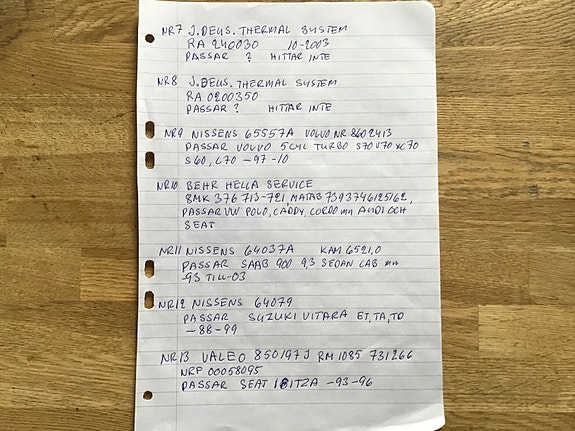 NR7 J. DEUS. THERMAL SYSTEM
RA 240030 10-2003
PASSAR ? HITTAR INTE
NR8 J. DEUS. THERMAL SYSTEM
RA 0200350
PASSAR ? HITTAR INTE
NR9 NISSENS 65557A VOLVO NR 8602413
PASSAR VOLVO 5CYL TURBO S70 V70 XC70
S60, C70 -97-10
NR10 BEHR HELLA SERVICE
8MK 376 713-721, MATAB 7393746125162,
PASSAR VW POLO, CADDY, CORDO mm AUDI OCH
SEAT
NR11 NISSENS 64037A KAM 6521,0
PASSAR SAAB 900 9,3 SEDAN CAB mm
-93 TILL-03
NR12 NISSENS 64079
PASSAR SUZUKI VITARA ET, TA, TD
-88-99
NR13 VALEO 850197J RM1085 731266
NRF 00058095
PASSAR SEAT IBITZA -93-96